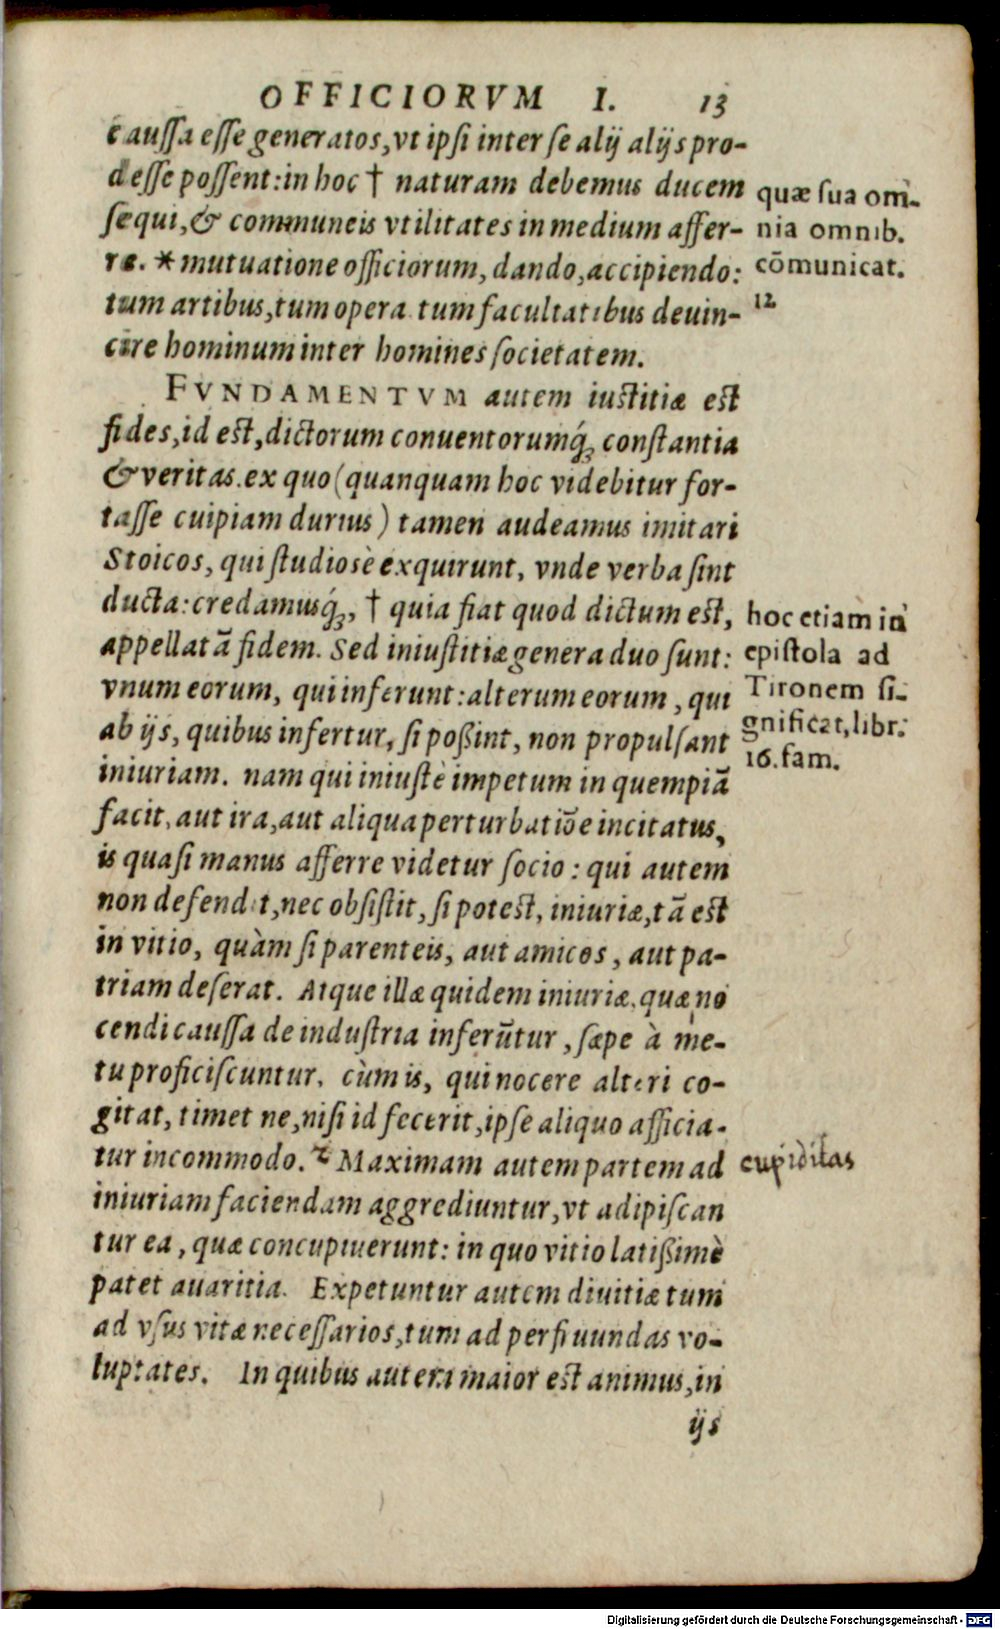 OFFICIORVM I. 13
caussa esse generatos, vt ipsi inter se alij alijs pro-
desse possent: in hoc † naturam debemus ducem
sequi, & communeis vtilitates in medium affer-
re. * mutuatione officiorum, dando, accipiendo:
tum artibus, tum opera tum facultatibus deuin-
cire hominum inter homines societatem.
quæ sua om-
nia omnib.
cōmunicat.
12
FVNDAMENTVM autem iustitiæ est
fides, id est, dictorum conuentorumq́; constantia
& veritas. ex quo (quanquam hoc videbitur for-
tasse cuipiam durius) tamen audeamus imitari
Stoicos, qui studiosè exquirunt, vnde verba sint
ducta: credamusq́;, † quia fiat quod dictum est,
appellatā fidem. Sed iniustitiæ genera duo sunt:
vnum eorum, qui inferunt: alterum eorum, qui
ab ijs, quibus infertur, si poßint, non propulsant
iniuriam. nam qui iniustè impetum in quempiā
facit, aut ira, aut aliqua perturbatiōe incitatus,
is quasi manus afferre videtur socio: qui autem
non defendit, nec obsistit, si potest, iniuriæ, tā est
in vitio, quàm si parenteis, aut amicos, aut pa-
triam deserat. Atque illæ quidem iniuriæ, quæ no
cendi caussa de industria inferūtur, sæpe à me-
tu proficiscuntur. cùm is, qui nocere alteri co-
gitat, timet ne, nisi id fecerit, ipse aliquo afficia-
tur incommodo. Maximam autem partem ad
iniuriam faciendam aggrediuntur, vt adipiscan
tur ea, quæ concupiuerunt: in quo vitio latißimè
patet auaritia. Expetuntur autem diuitiæ tum
ad vsus vitæ necessarios, tum ad perfruundas vo-
luptates. In quibus autem maior est animus, in
ijs
hoc etiam in
epistola ad
Tironem si-
gnificat, libr.
16. fam.
cupiditas
Digitalisierung gefördert durch die Deutsche Forschungsgemeinschaft - DFG